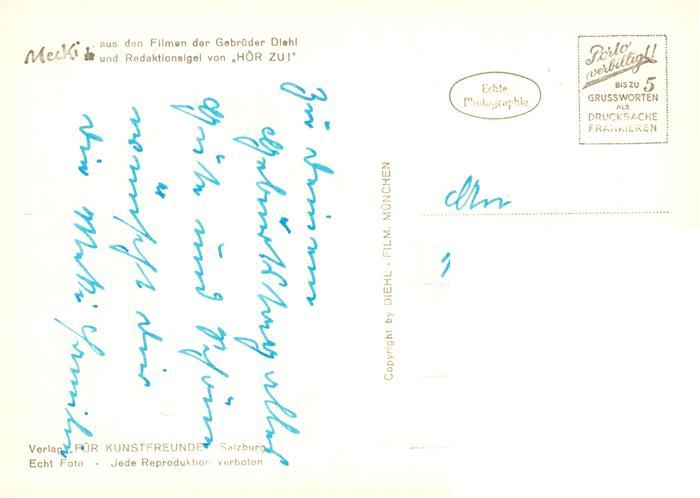 Mecki aus den Filmen der Gebrüder Diehl
und Redaktionsigel von „HÖR ZU!"
Echte
Photographie
Porto
verbilligt!
BIS ZU 5
GRUSSWORTEN
ALS
DRUCKSACHE
FRANKIEREN
Zu deinem
Geburtstag alles
Gute und Schöne
wünscht dir
die Mecki Familie
An
Copyright by DIEHL-FILM, MÜNCHEN
Verlag „FÜR KUNSTFREUNDE" Salzburg
Echt Foto - Jede Reproduktion verboten